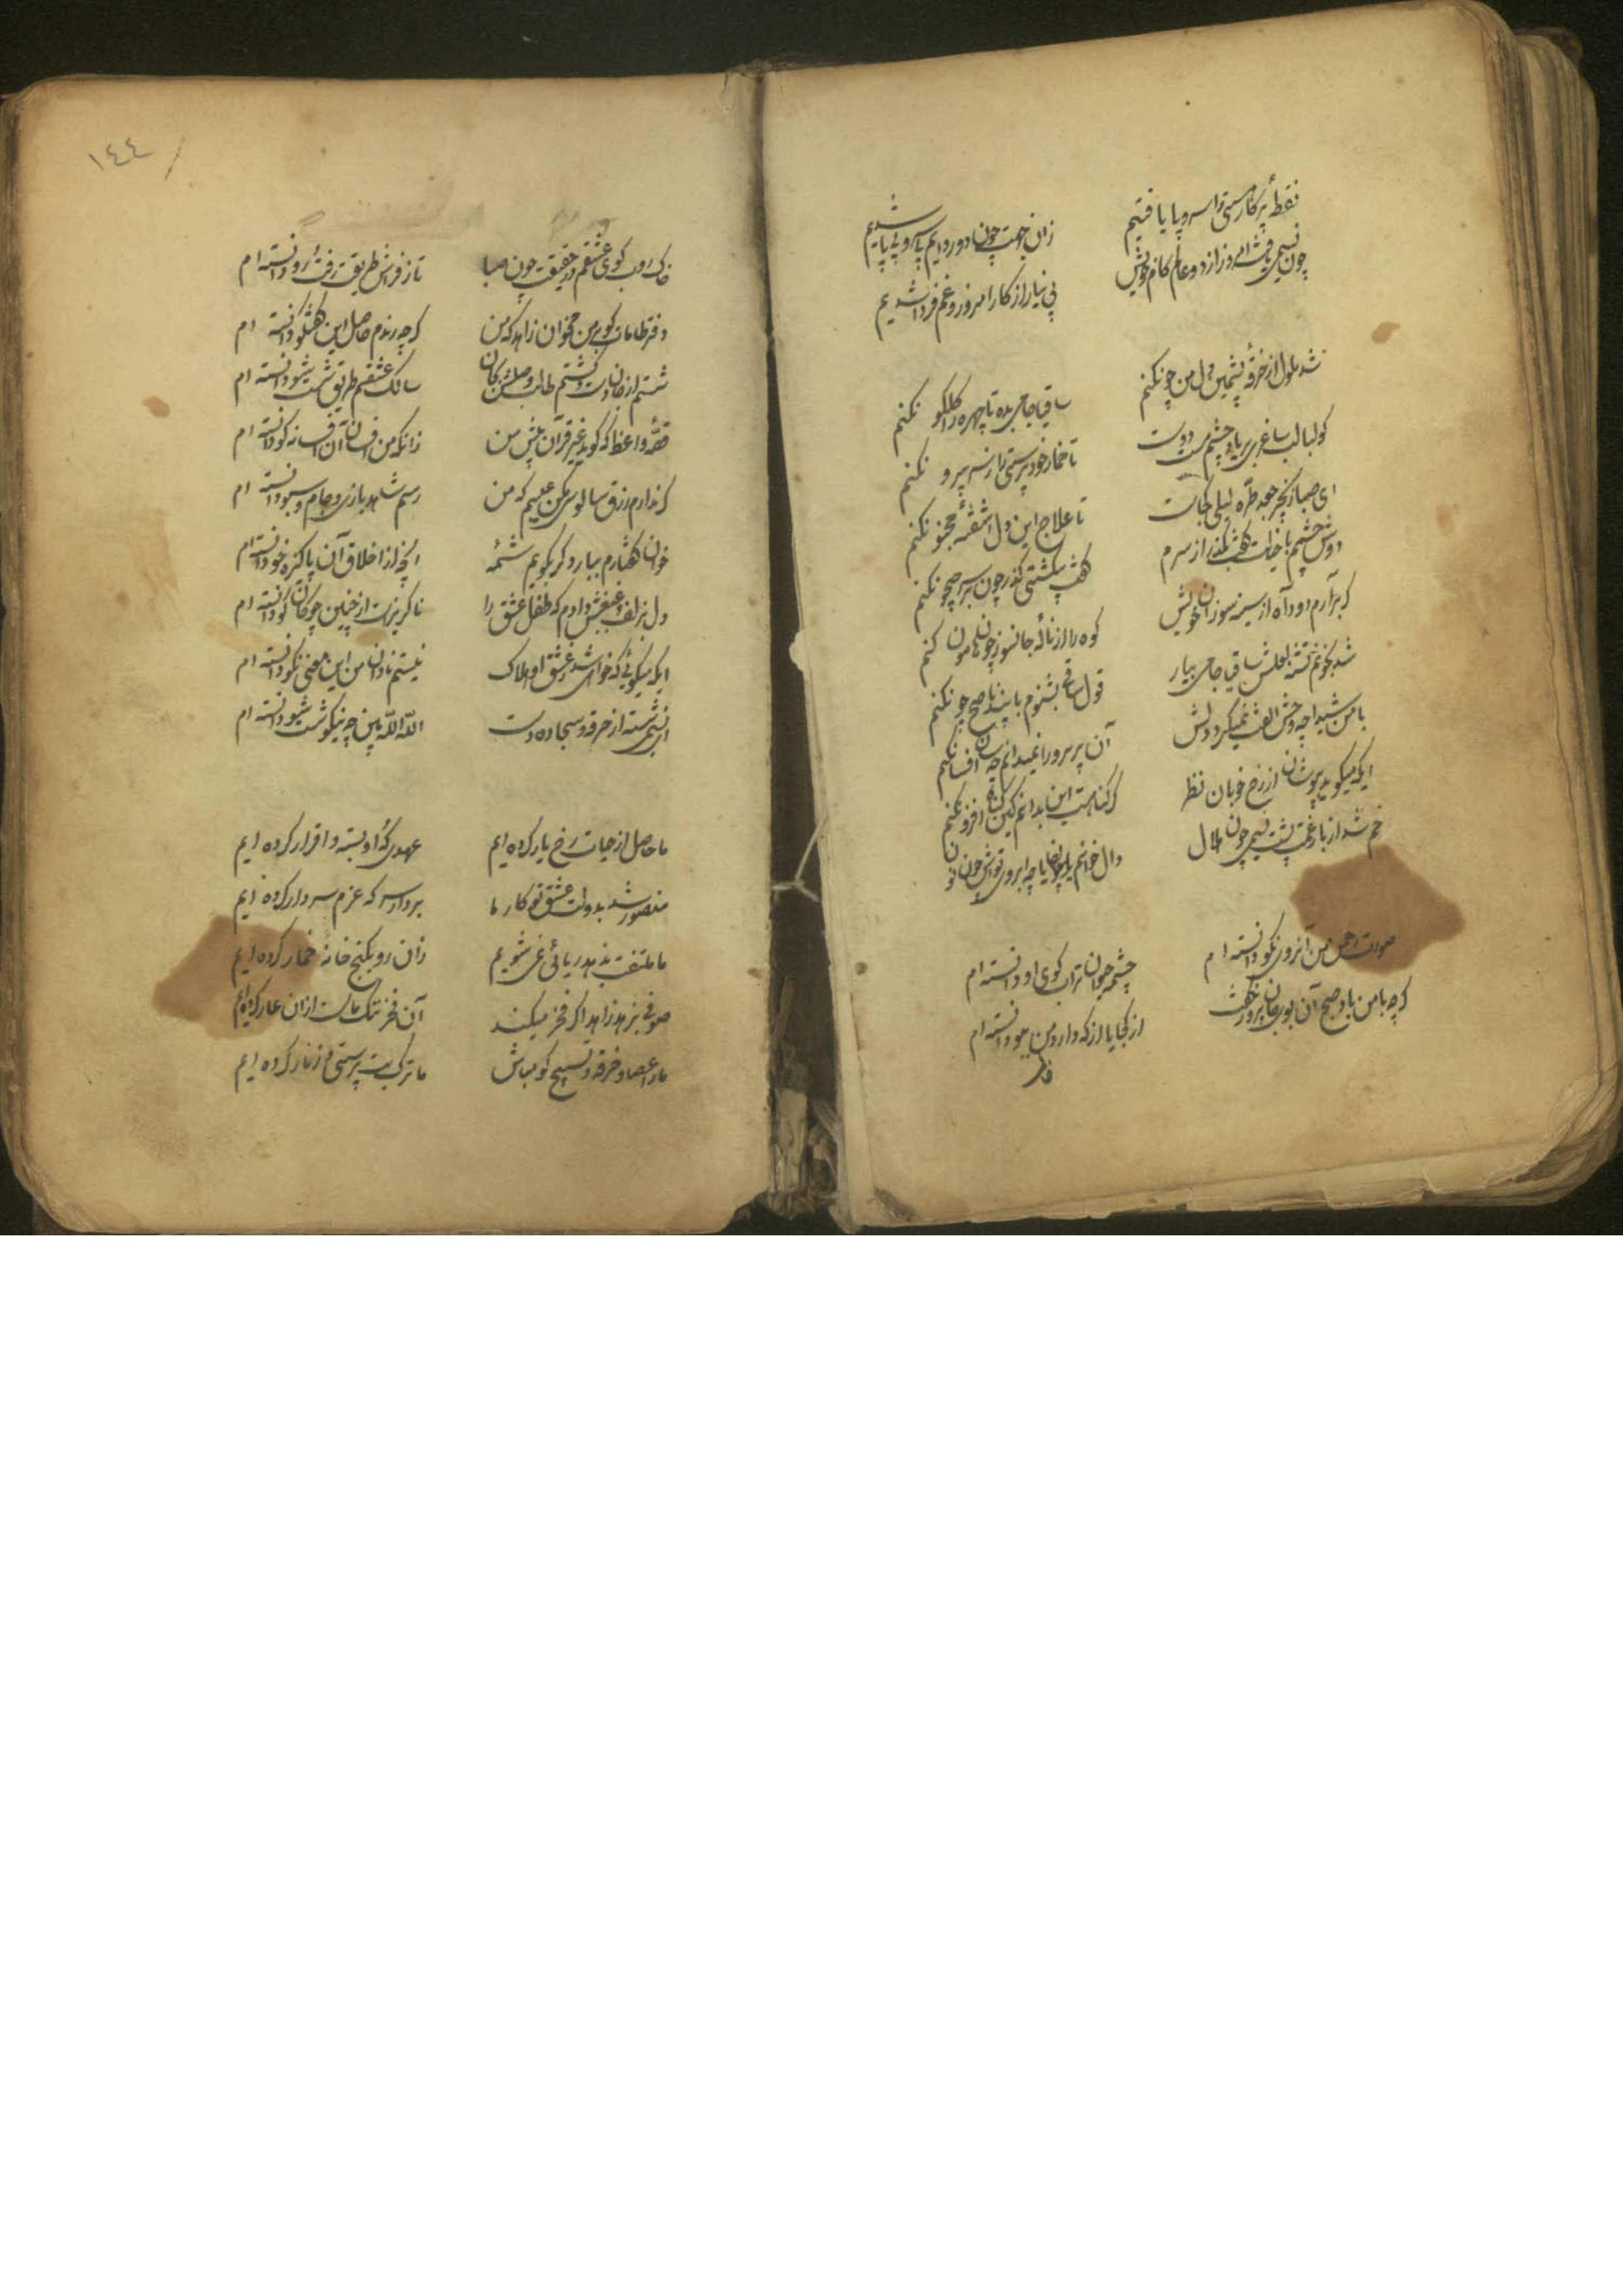 نقطهٔ پرکار هستی را سر و پا یافتیم
زان جهت چون دور دایم بی سر و بی پا شدیم
چون نسیمی یافت امروز از دو عالم کام خویش
بی نیاز از کار امروز و غم فردا شدیم
شد ملول از خرقهٔ پشمین دل من چونکنم
ساقیا جامی بده تا چهره را گلگو نکنم
کو لبالب ساغری بر یاد چشم مست دوست
تا خمار خودپرستی را ز سر بیرو نکنم
ای صبا زنجیر جعد طرهٔ لیلی کجاست
تا علاج این دل آشفتهٔ مجنو نکنم
دوش چشمم با خیالت گفت بگذر از سرم
گفت بی کشتی گذر چون بر سر جیحو نکنم
گر برآرم دود آه از سینهٔ سوزان خویش
کوه را از نالهٔ جانسوز چون هامون کنم
شد بخونم تشنه لعلش ساقیا جامی بیار
قول ساقی بشنوم یا پند ناصح چونکنم
با من شیدا چو وحش الفت نمیگیرد دلش
آن پری رو را نمیدانم چه سان افسا نکنم
ایکه میگوید بپوشان از رخ خوبان نظر
گر گناهست این بدانم کین گناه افزونکنم
خم شد از بار غمت پشت نسیمی چون هلال
دال خوانم یا چو ابروی تواش چون نو
صورت رحمن من آنروی نکو دانسته ام
چشمه حیوان تراب کوی او دانسته ام
گرچه با من باد صبح آن بوی جان پرور نگفت
از کجا یا از که دارد من ببو دانسته ام
خاک
١٤٤
خاک روب کوی عشقم در حقیقت چون صبا
تا ز فراش طریقت رفت و رو دانسته ام
دفتر طامات کو بر من مخوان زاهد که من
گرچه رندم حاصل این گفتگو دانسته ام
شستم از جان دست و گشتم طالب وصلش که آن
سالک عشقم طریق شست و شو دانسته ام
قصهٔ واعظ که گوید غیر قرآن پیش من
زانکه من افسان آن افسانه گو دانسته ام
گر ندارم زرق سالوسی مکن عیبم که من
رسم شاهد بازی و جام و سبو دانسته ام
خوان گفتارم بیارد گر بگویم شمهٔ
آنچه از اخلاق آن پاکیزه خو دانسته ام
دل بزلف و غبغبش دادم که طفل عشق را
ناگزیرست از چنین چوگان گو دانسته ام
ایکه میگوئی که خواهی شد ز عشق او هلاک
نیستم نادان من این معنی نکو دانسته ام
ای نسیمی شسته از خرقه و سجاده دست
الله الله بین چه نیکو شست و شو دانسته ام
ما حاصل از حیات رخ یار کرده ایم
عهدی که او بسته و اقرار کرده ایم
منصور شد بدولت عشق تو کار ما
بر دار سر که عزم سر دار کرده ایم
ما ملتفت بزهد ریائی نمی شویم
زان رو بکنج خانهٔ خمار کرده ایم
صوفی بزهد زاهد اگر فخر میکند
آن فخر ننگ ماست ازان عار کرده ایم
ما را عصا و خرقه و تسبیح گو مباش
ما ترک بت پرستی و زنار کرده ایم